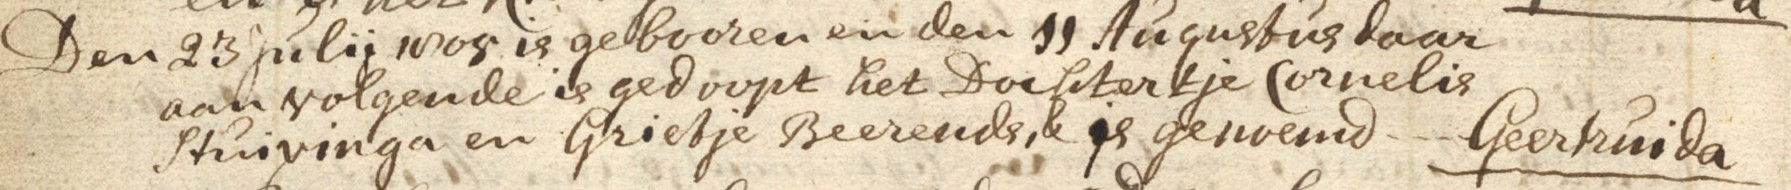 Den 23 julij 1805 is gebooren en den 11 Augustus daar
aan volgende is gedoopt het Dochtertje Cornelis
Stuivinga en Grietje Beerends, & is genoemd - - Geertruida